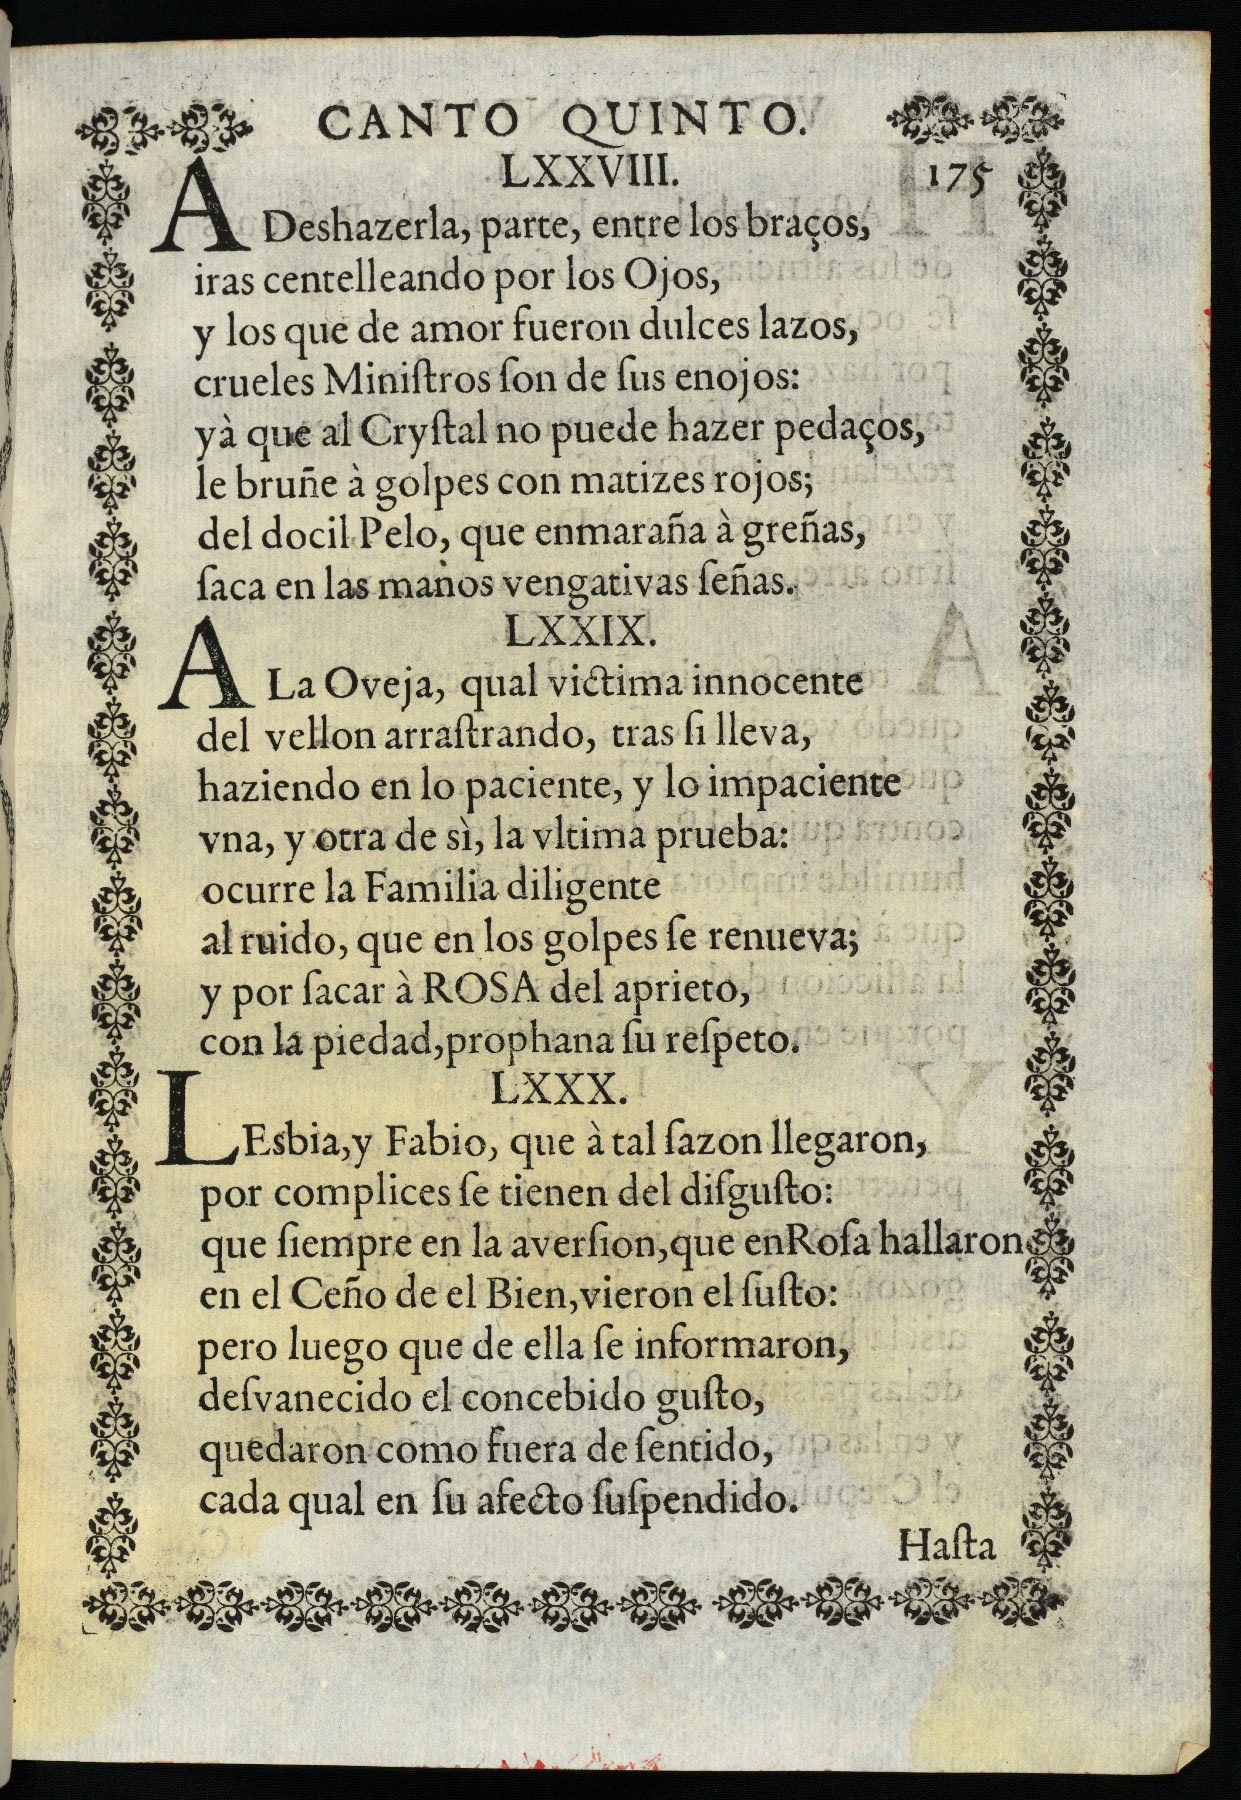 CANTO QUINTO.
LXXVIII. 175
A Deshazerla, parte, entre los braços,
iras centelleando por los Ojos,
y los que de amor fueron dulces lazos,
crueles Miniſtros ſon de ſus enojos:
yà que al Cryſtal no puede hazer pedaços,
le bruñe à golpes con matizes rojos;
del docil Pelo, que enmaraña à greñas,
ſaca en las manos vengativas ſeñas.
LXXIX.
A La Oveja, qual victima innocente
del vellon arraſtrando, tras ſi lleva,
haziendo en lo paciente, y lo impaciente
vna, y otra de sì, la vltima prueba:
ocurre la Familia diligente
al ruido, que en los golpes ſe renueva;
y por ſacar à ROSA del aprieto,
con la piedad,prophana ſu reſpeto.
LXXX.
LEsbia,y Fabio, que à tal ſazon llegaron,
por complices ſe tienen del diſguſto:
que ſiempre en la averſion,que enRoſa hallaron
en el Ceño de el Bien,vieron el ſuſto:
pero luego que de ella ſe informaron,
deſvanecido el concebido guſto,
quedaron como fuera de ſentido,
cada qual en ſu afecto ſuſpendido.
Haſta